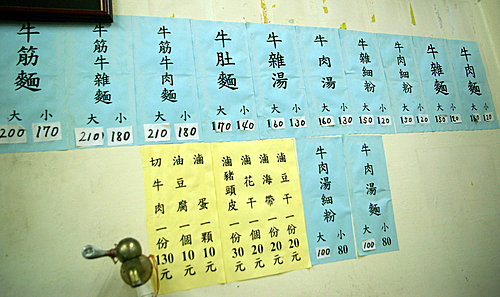 牛筋麵
大 小
200 170
牛筋牛雜麵
大 小
210 180
牛筋牛肉麵
大 小
210 180
牛肚麵
大 小
170 140
牛雜湯
大 小
160 130
牛肉湯
大 小
160 130
牛雜細粉
大 小
150 120
牛肉細粉
大 小
120
牛雜麵
大 小
150 120
牛肉麵
大 小
切牛肉一份130元
油豆腐一個10元
滷蛋一顆10元
滷豬頭皮一份30元
滷花干一個20元
滷海帶一份20元
滷豆干一份20元
牛肉湯細粉
大 小
100 80
牛肉湯麵
大 小
100 80